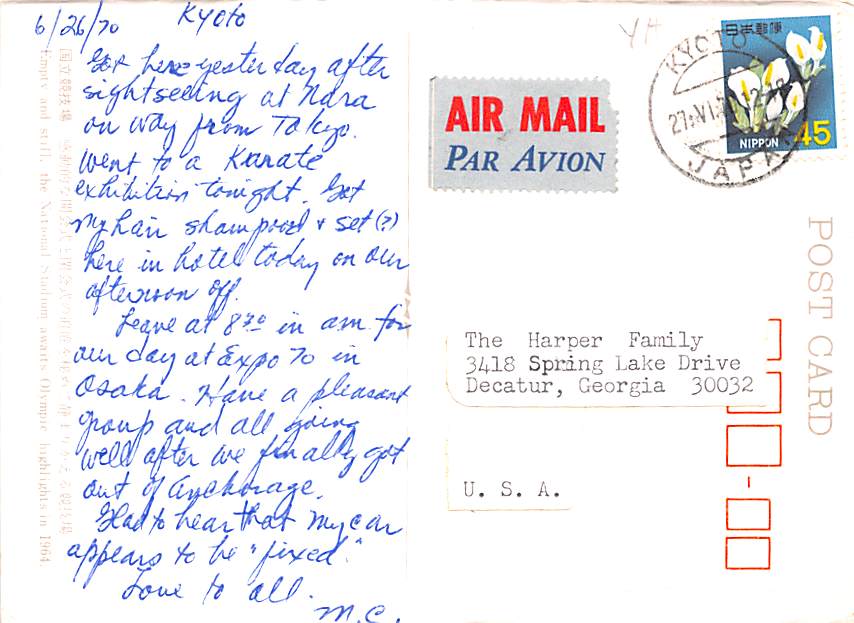 6/26/70 Kyoto
Got here yesterday after
sightseeing at Nara
on way from Tokyo.
Went to a Karate
exhibition tonight. Got
my hair shampood & set (?)
here in hotel today on our
afternoon off.
Leave at 8:30 in am for
our day at Expo 70 in
Osaka. Have a pleasant
group and all going
well after we finally got
out of Anchorage.
Glad to hear that my car
appears to be "fixed."
Love to all.
M.C.
Empty and still, the National Stadium awaits Olympic highlights in 1964
国立競技場
AIR MAIL
PAR AVION
日本郵便
NIPPON 45
KYOTO
27.VI.
JAPAN
POST CARD
The Harper Family
3418 Spring Lake Drive
Decatur, Georgia 30032
U. S. A.